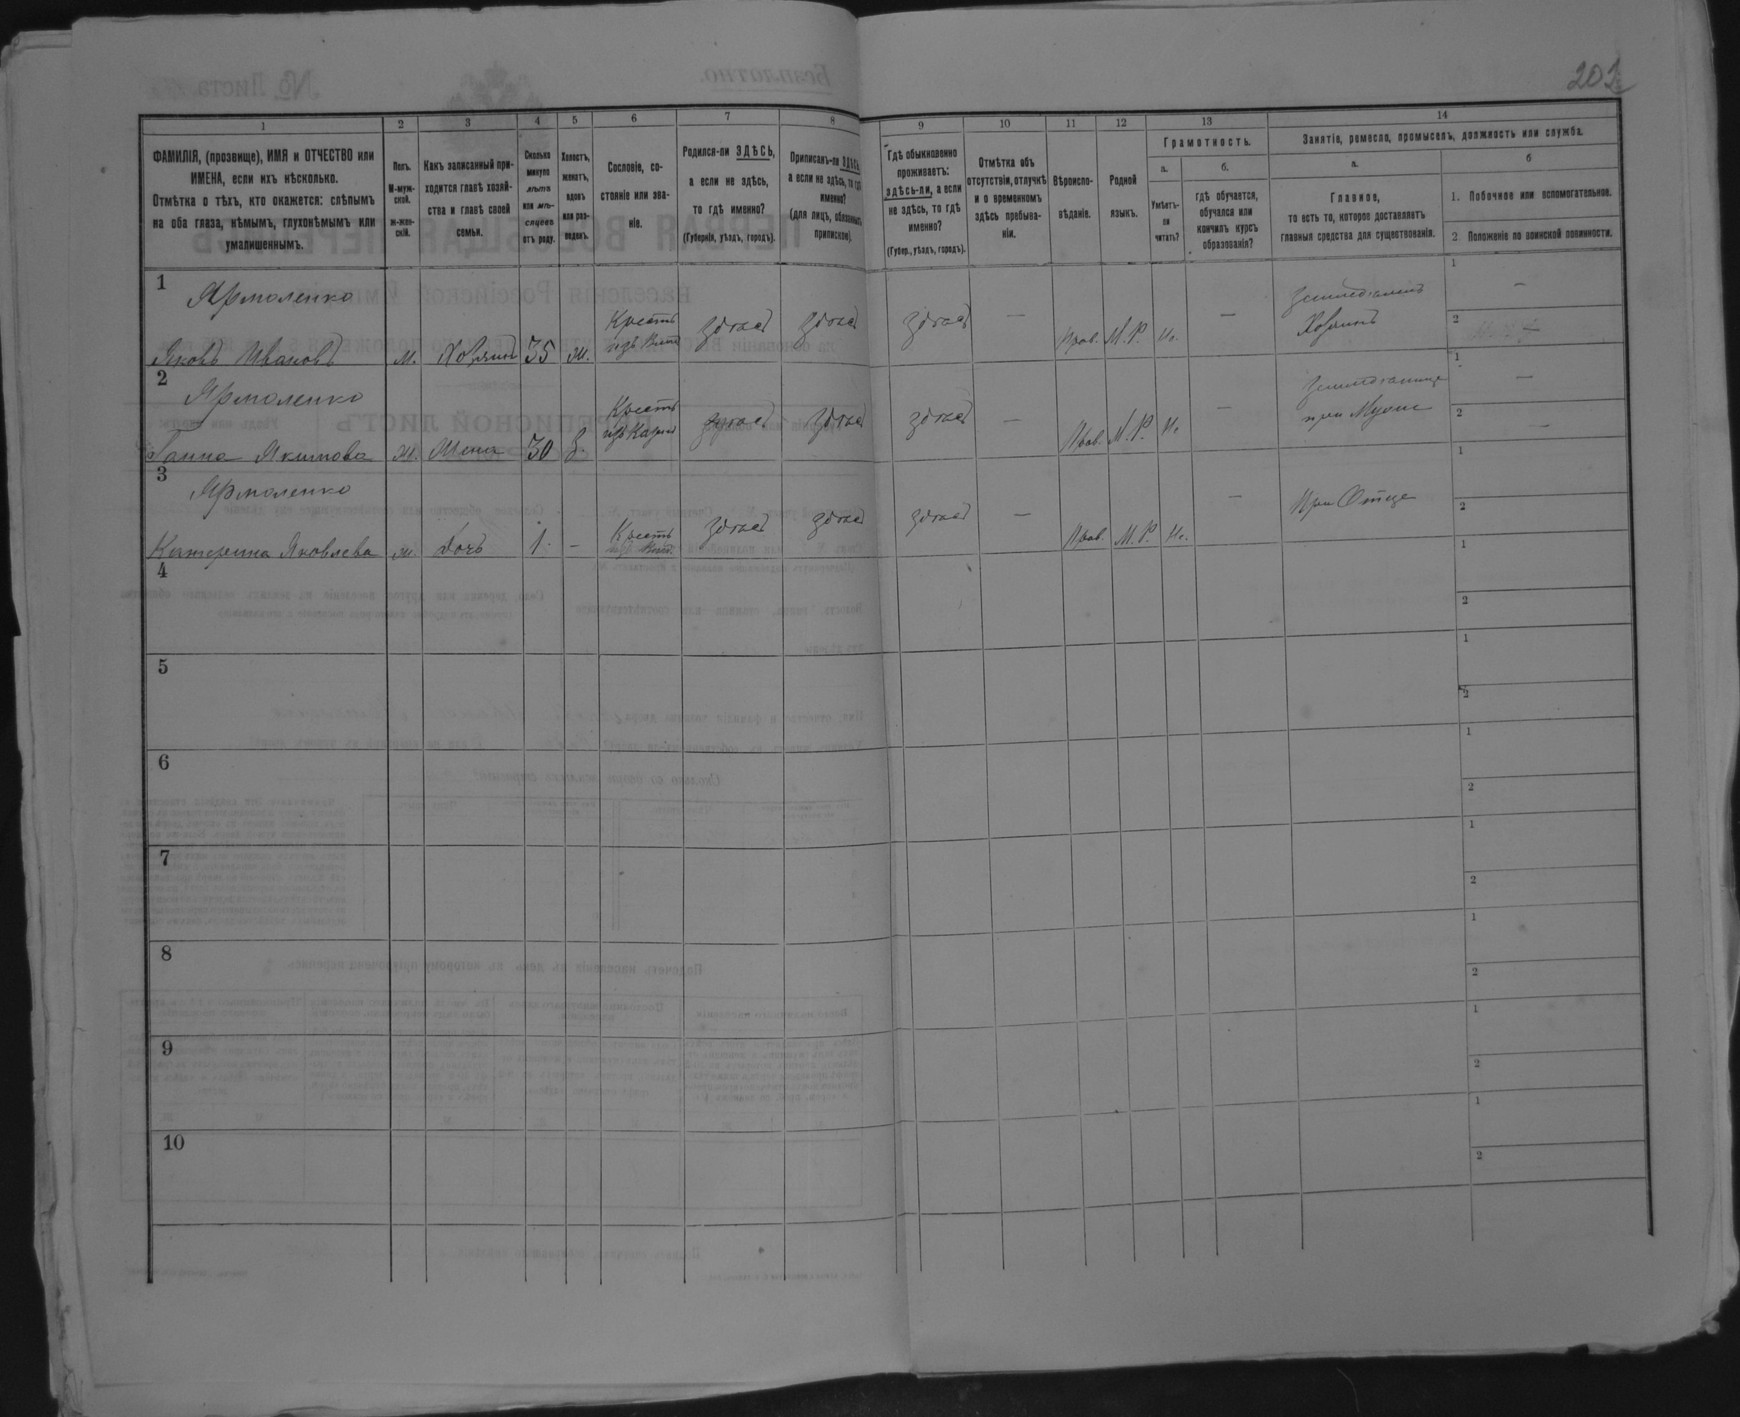 201
1
2
3
4
5
6
7
8
9
10
11
12
13
14
ФАМИЛІЯ, (прозвище), ИМЯ и ОТЧЕСТВО или
ИМЕНА, если ихъ нѣсколько.
Отмѣтка о тѣхъ, кто окажется: слѣпымъ
на оба глаза, нѣмымъ, глухонѣмымъ или
умалишеннымъ.
Полъ.
М-муж-
ской.
Ж-жен-
скій.
Какъ записанный при-
ходится главѣ хозяй-
ства и главѣ своей
семьи.
Сколько
минуло
лѣтъ
или мѣ-
сяцевъ
отъ роду.
Холостъ,
женатъ,
вдовъ
или раз-
веденъ.
Сословіе, со-
стояніе или зва-
ніе.
Родился-ли ЗДѢСЬ,
а если не здѣсь,
то гдѣ именно?
(Губернія, уѣздъ, городъ).
Приписанъ-ли ЗДѢСЬ,
а если не здѣсь, то гдѣ
именно?
(для лицъ, обязанныхъ
припиской).
Гдѣ обыкновенно
проживаетъ:
здѣсь-ли, а если
не здѣсь, то гдѣ
именно?
(Губер., уѣздъ, городъ).
Отмѣтка объ
отсутствіи, отлучкѣ
и о временномъ
здѣсь пребыва-
ніи.
Вѣроиспо-
вѣданіе.
Родной
языкъ.
Грамотность.
а.
Умѣетъ-
ли
читать?
б.
гдѣ обучается,
обучался или
кончилъ курсъ
образованія?
Занятіе, ремесло, промыселъ, должность или служба.
а.
Главное,
то есть то, которое доставляетъ
главныя средства для существованія.
б
1. Побочное или вспомогательное.
2 Положеніе по воинской повинности.
1
Ярмоленко
Яковъ Ивановъ
м. Хозяинъ 35 ж.
Крестьян
здѣсь здѣсь здѣсь — Прав. М. Р. Н. —
Хозяинъ
1 —
2
2
Ярмоленко
Ганна Якимова
ж. Жена 30 з.
Крестьян
здѣсь здѣсь здѣсь — Прав. М. Р. Н. —
при Мужѣ
1 —
2 —
3
Ярмоленко
Катерина Яковлева
ж. Дочь 1. -
Крестьян
здѣсь здѣсь здѣсь — Прав. М. Р. Н. —
При Отцѣ
1
2
4
1
2
5
1
2
6
1
2
7
1
2
8
1
2
9
1
2
10
1
2